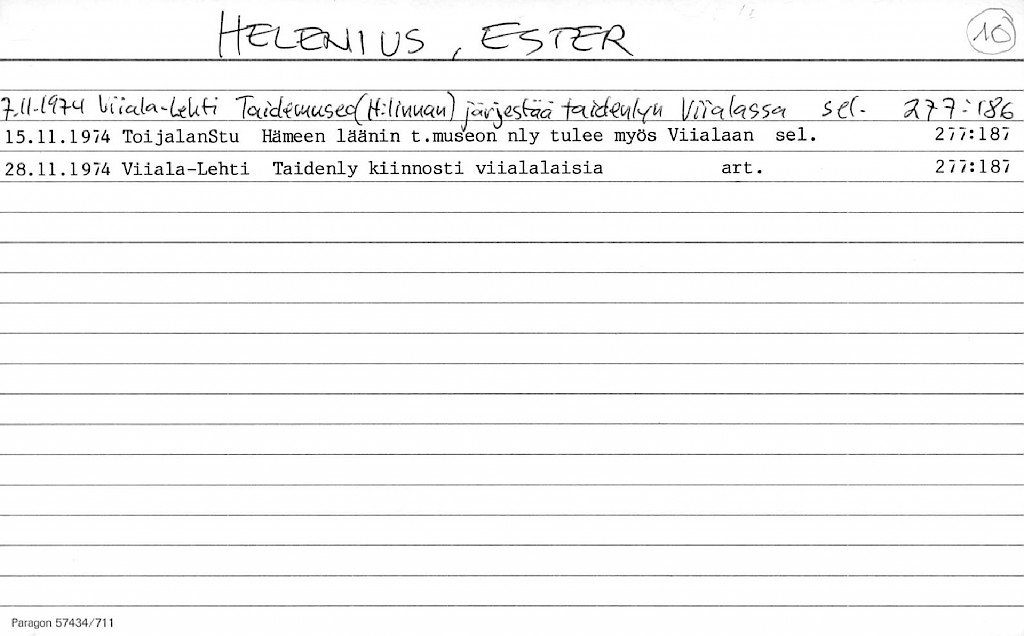 HELENIUS, ESTER 10
7.11.1974 Viiala-Lehti Taidemuseo (H:linnan) järjestää taidenlyn Viialassa sel. 277:186
15.11.1974 ToijalanStu Hämeen läänin t.museon nly tulee myös Viialaan sel. 277:187
28.11.1974 Viiala-Lehti Taidenly kiinnosti viialalaisia art. 277:187
Paragon 57434/711